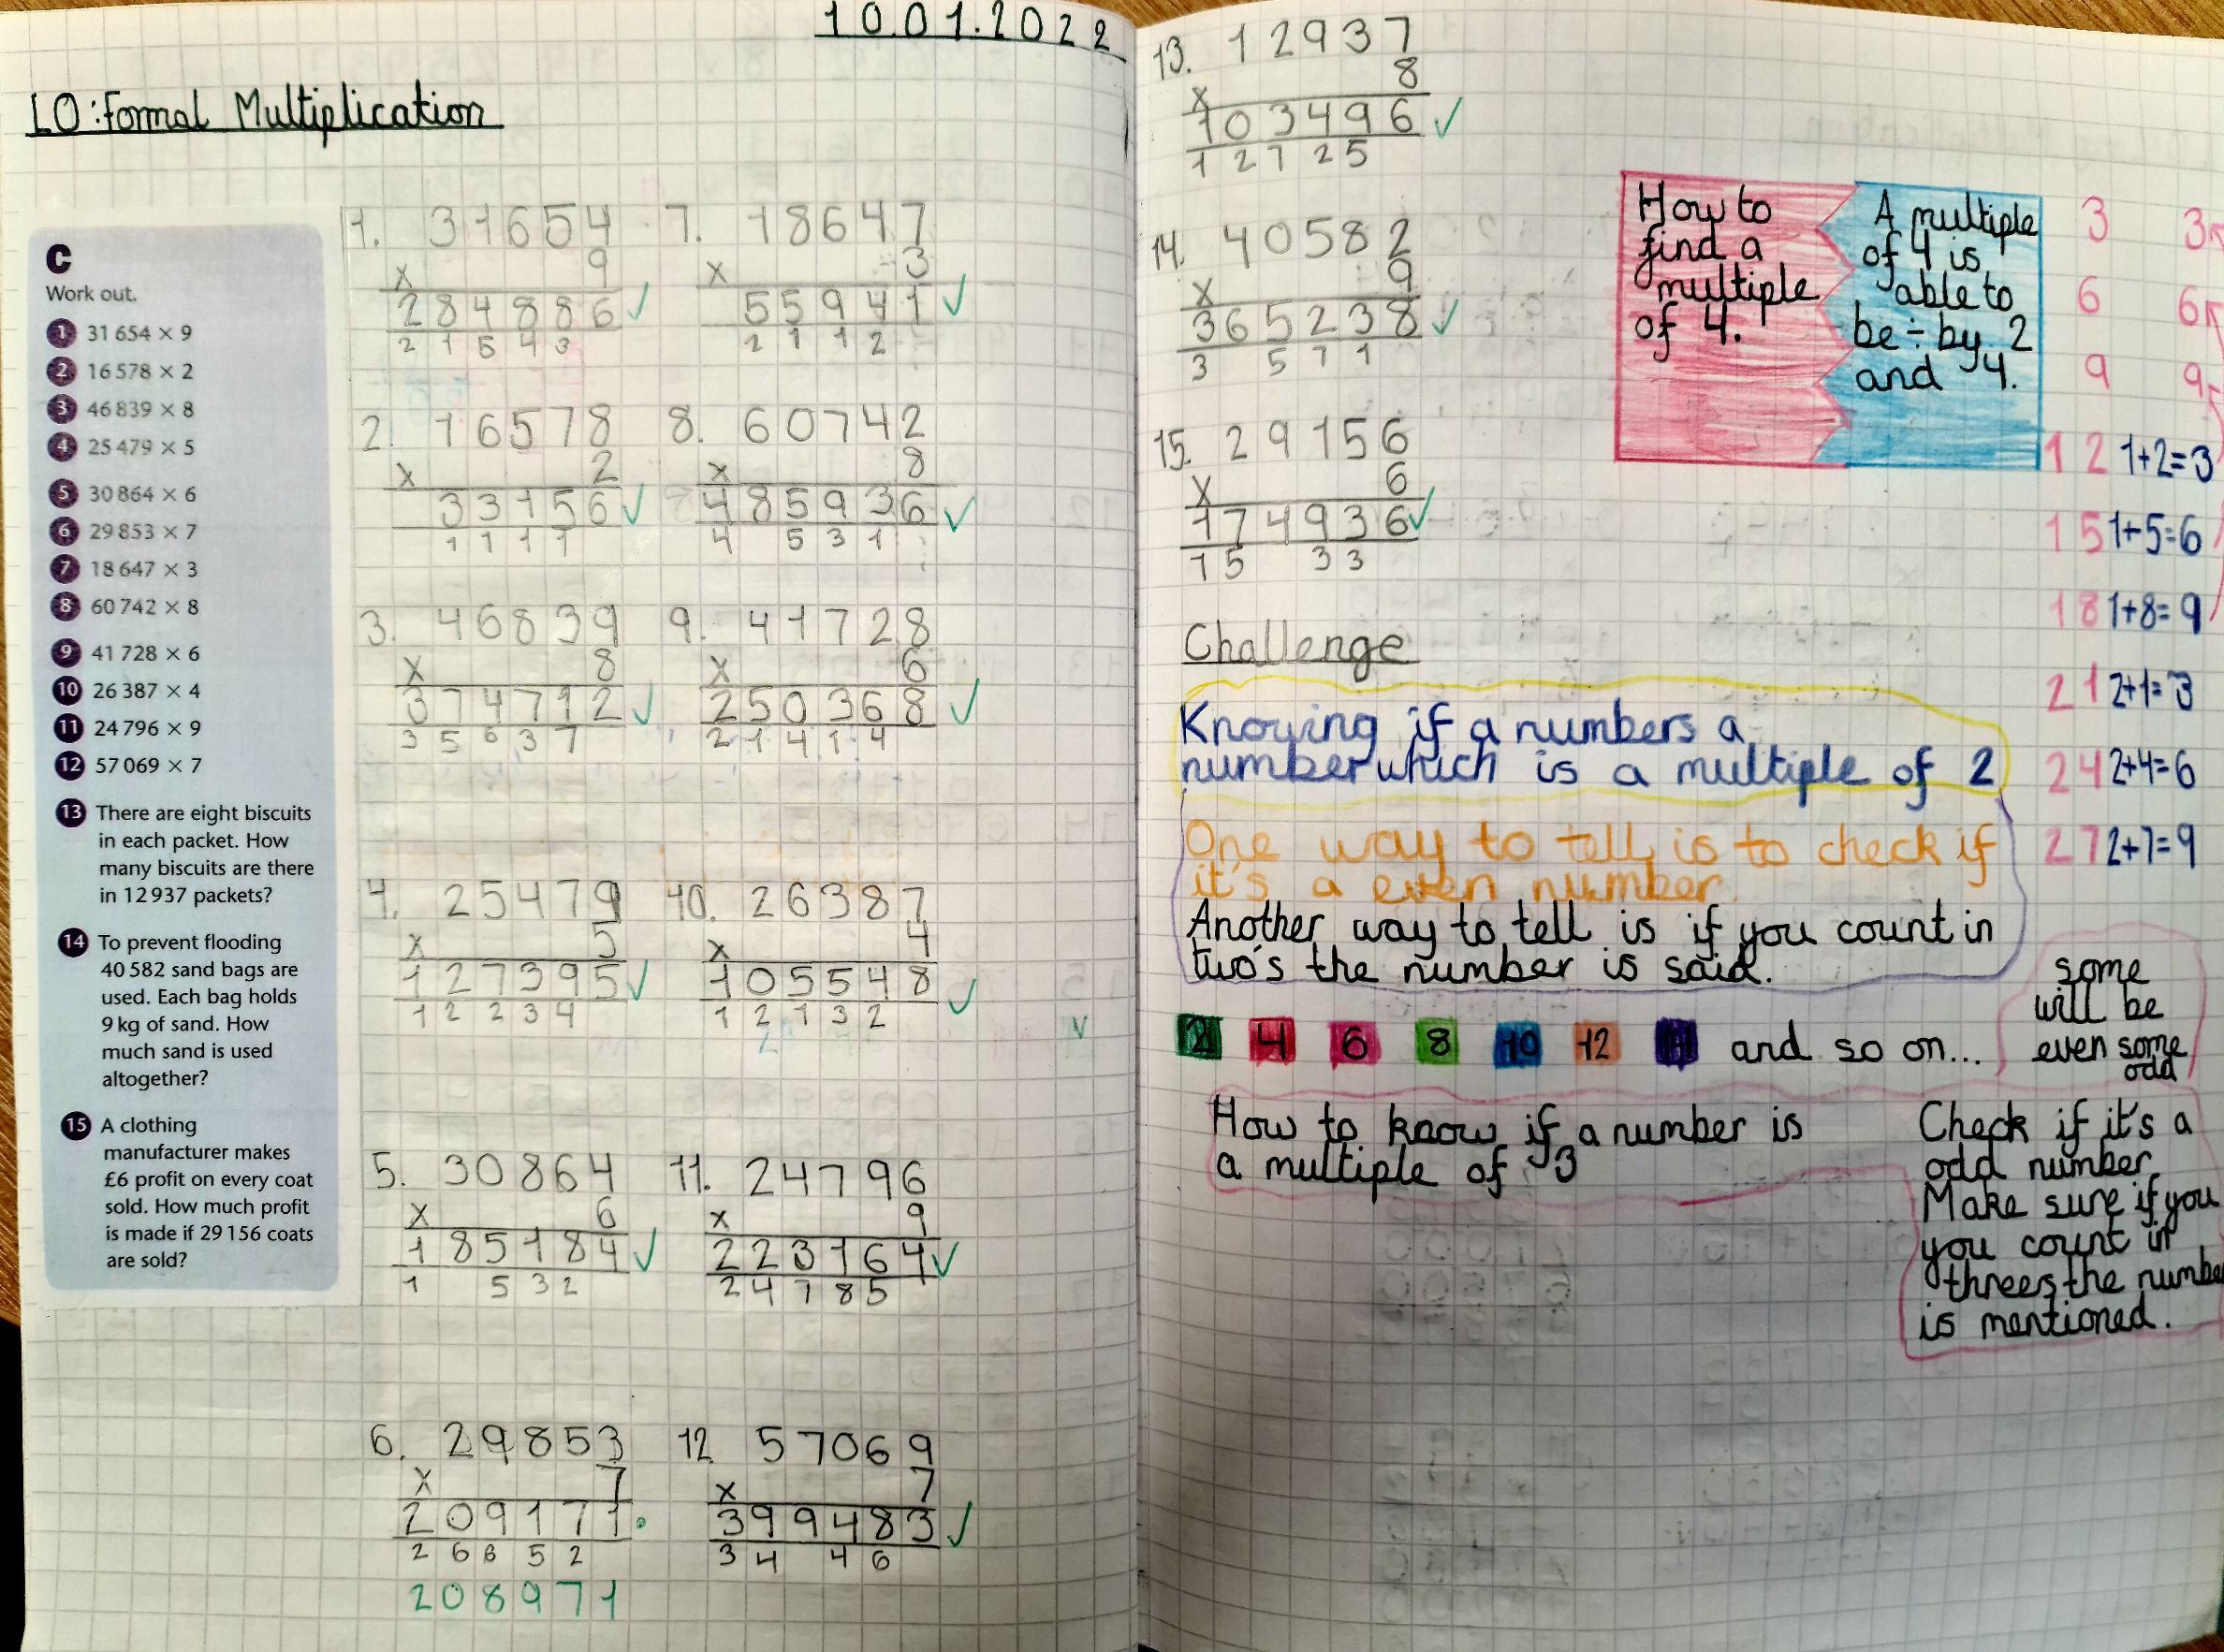 10.01.2022
LO: Formal Multiplication
C
Work out.
1 31 654 × 9
2 16 578 × 2
3 46 839 × 8
4 25 479 × 5
5 30 864 × 6
6 29 853 × 7
7 18 647 × 3
8 60 742 × 8
9 41 728 × 6
10 26 387 × 4
11 24 796 × 9
12 57 069 × 7
13 There are eight biscuits
in each packet. How
many biscuits are there
in 12 937 packets?
14 To prevent flooding
40 582 sand bags are
used. Each bag holds
9 kg of sand. How
much sand is used
altogether?
15 A clothing
manufacturer makes
£6 profit on every coat
sold. How much profit
is made if 29 156 coats
are sold?
1. 31654
× 9
284886 ✓
2 1 5 4 3
2. 16578
× 2
33156 ✓
1 1 1 1
3. 46839
× 8
374712 ✓
3 5 6 3 7
4. 25479
× 5
127395 ✓
1 2 2 3 4
5. 30864
× 6
185184 ✓
1 5 3 2
6. 29853
× 7
209171 •
2 6 6 5 2
208971
7. 18647
× 3
55941 ✓
2 1 1 2
8. 60742
× 8
485936 ✓
4 5 3 1
9. 41728
× 6
250368 ✓
2 1 4 1 4
10. 26387
× 4
105548 ✓
1 2 1 3 2
11. 24796
× 9
223164 ✓
2 4 7 8 5
12 57069
× 7
399483 ✓
3 4 4 6
13. 12937
8
×
103496 ✓
1 2 7 2 5
14. 40582
9
×
365238 ✓
3 5 7 1
15. 29156
6
×
174936 ✓
1 5 3 3
How to
find a
multiple
of 4.
A multiple
of 4 is
able to
be ÷ by 2
and 4.
3 3
6 6
9 9
12 1+2=3
15 1+5=6
18 1+8=9
21 2+1=3
24 2+4=6
27 2+7=9
Challenge
Knowing if a numbers a
number which is a multiple of 2
One way to tell is to check if
it's a even number.
Another way to tell is if you count in
two's the number is said.
2 4 6 8 10 12 14 and so on...
some
will be
even some
odd
How to know if a number is
a multiple of 3
Check if it's a
odd number.
Make sure if you
you count in
threes the number
is mentioned.